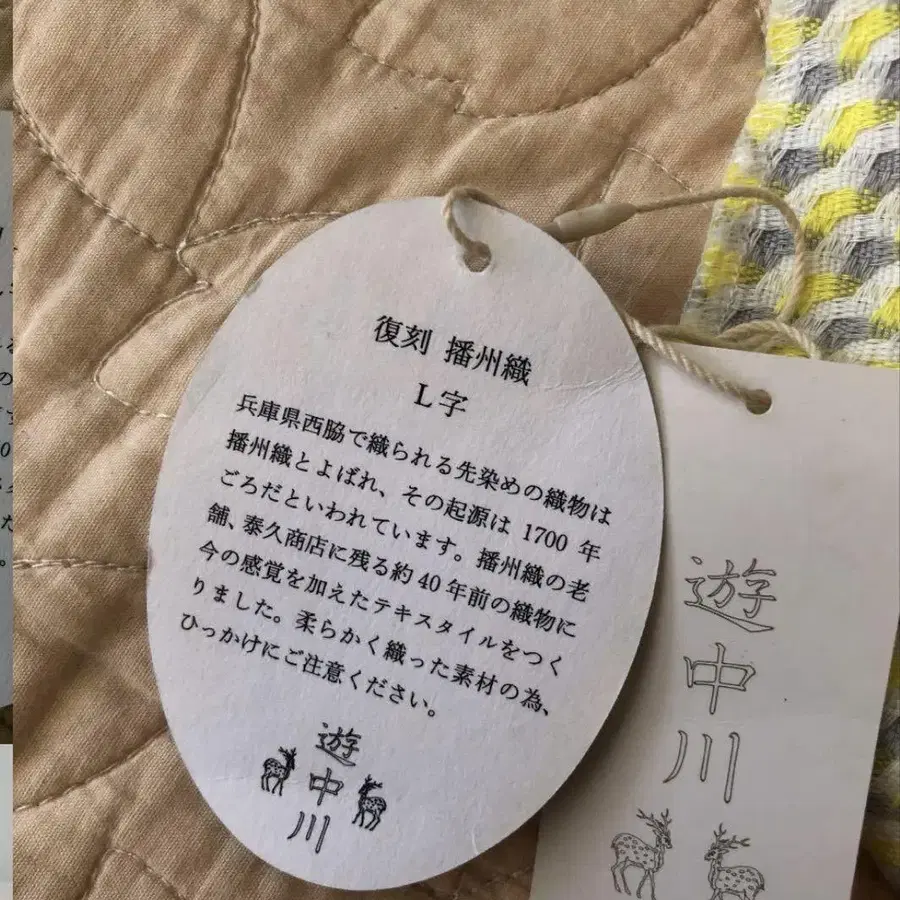 復刻 播州織
L字
兵庫県西脇で織られる先染めの織物は
播州織とよばれ、その起源は 1700 年
ごろだといわれています。播州織の老
舗、泰久商店に残る約 40 年前の織物に
今の感覚を加えたテキスタイルをつく
りました。柔らかく織った素材の為、
ひっかけにご注意ください。
遊
中
川
遊
中
川